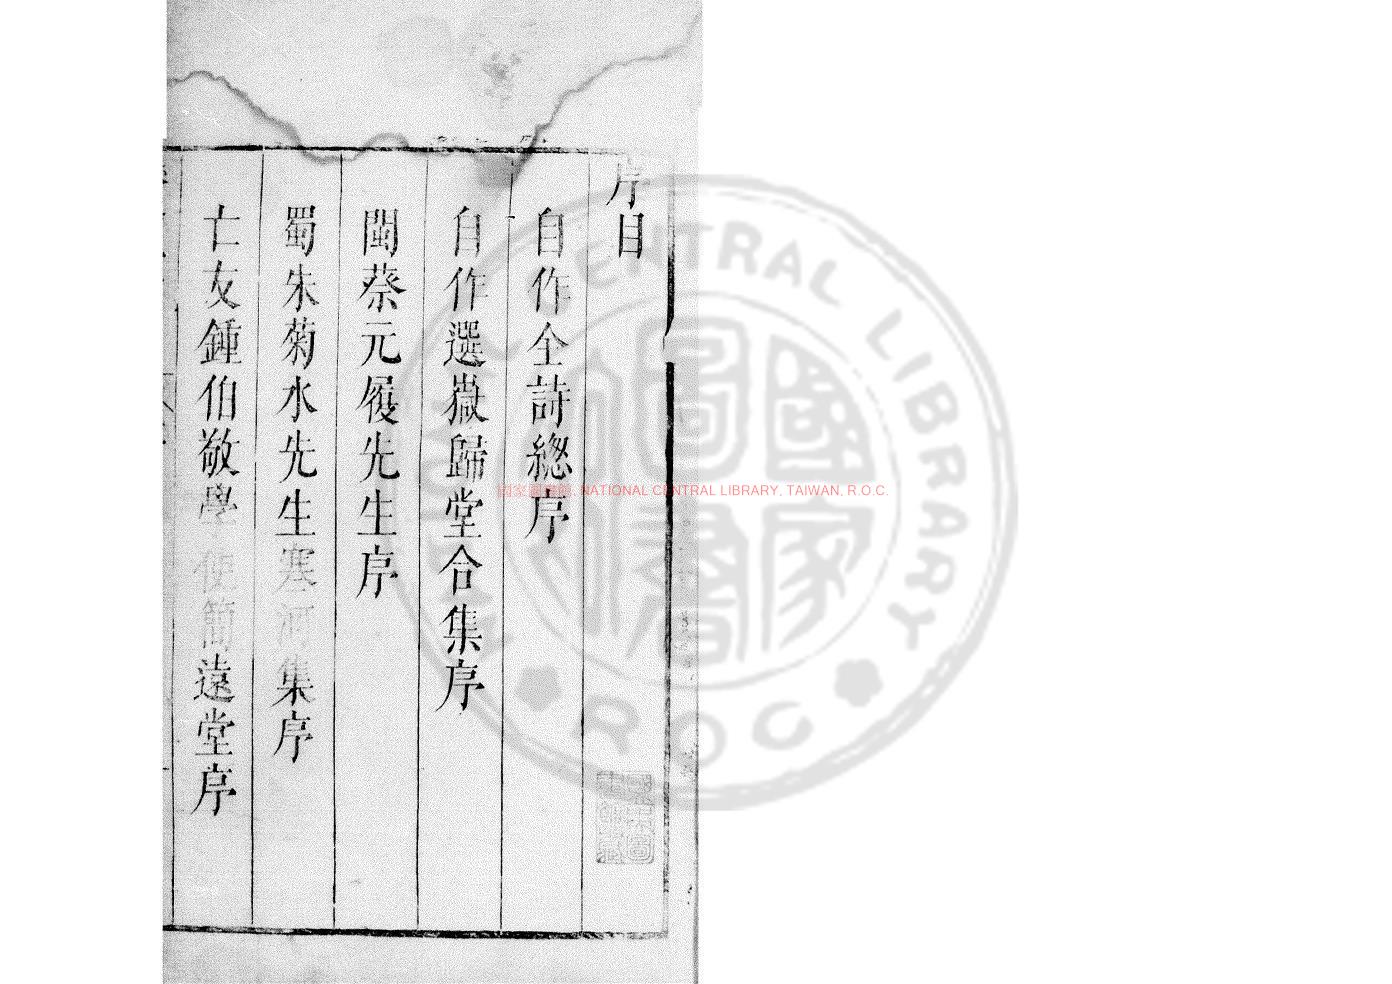 序目
自作全詩總序
自作選嶽歸堂合集序
閩蔡元履先生序
蜀朱菊水先生寒河集序
亡友鍾伯敬學使簡遠堂序
國家圖書館, NATIONAL CENTRAL LIBRARY, TAIWAN, R.O.C.
CENTRAL LIBRARY
R O C
國家圖書